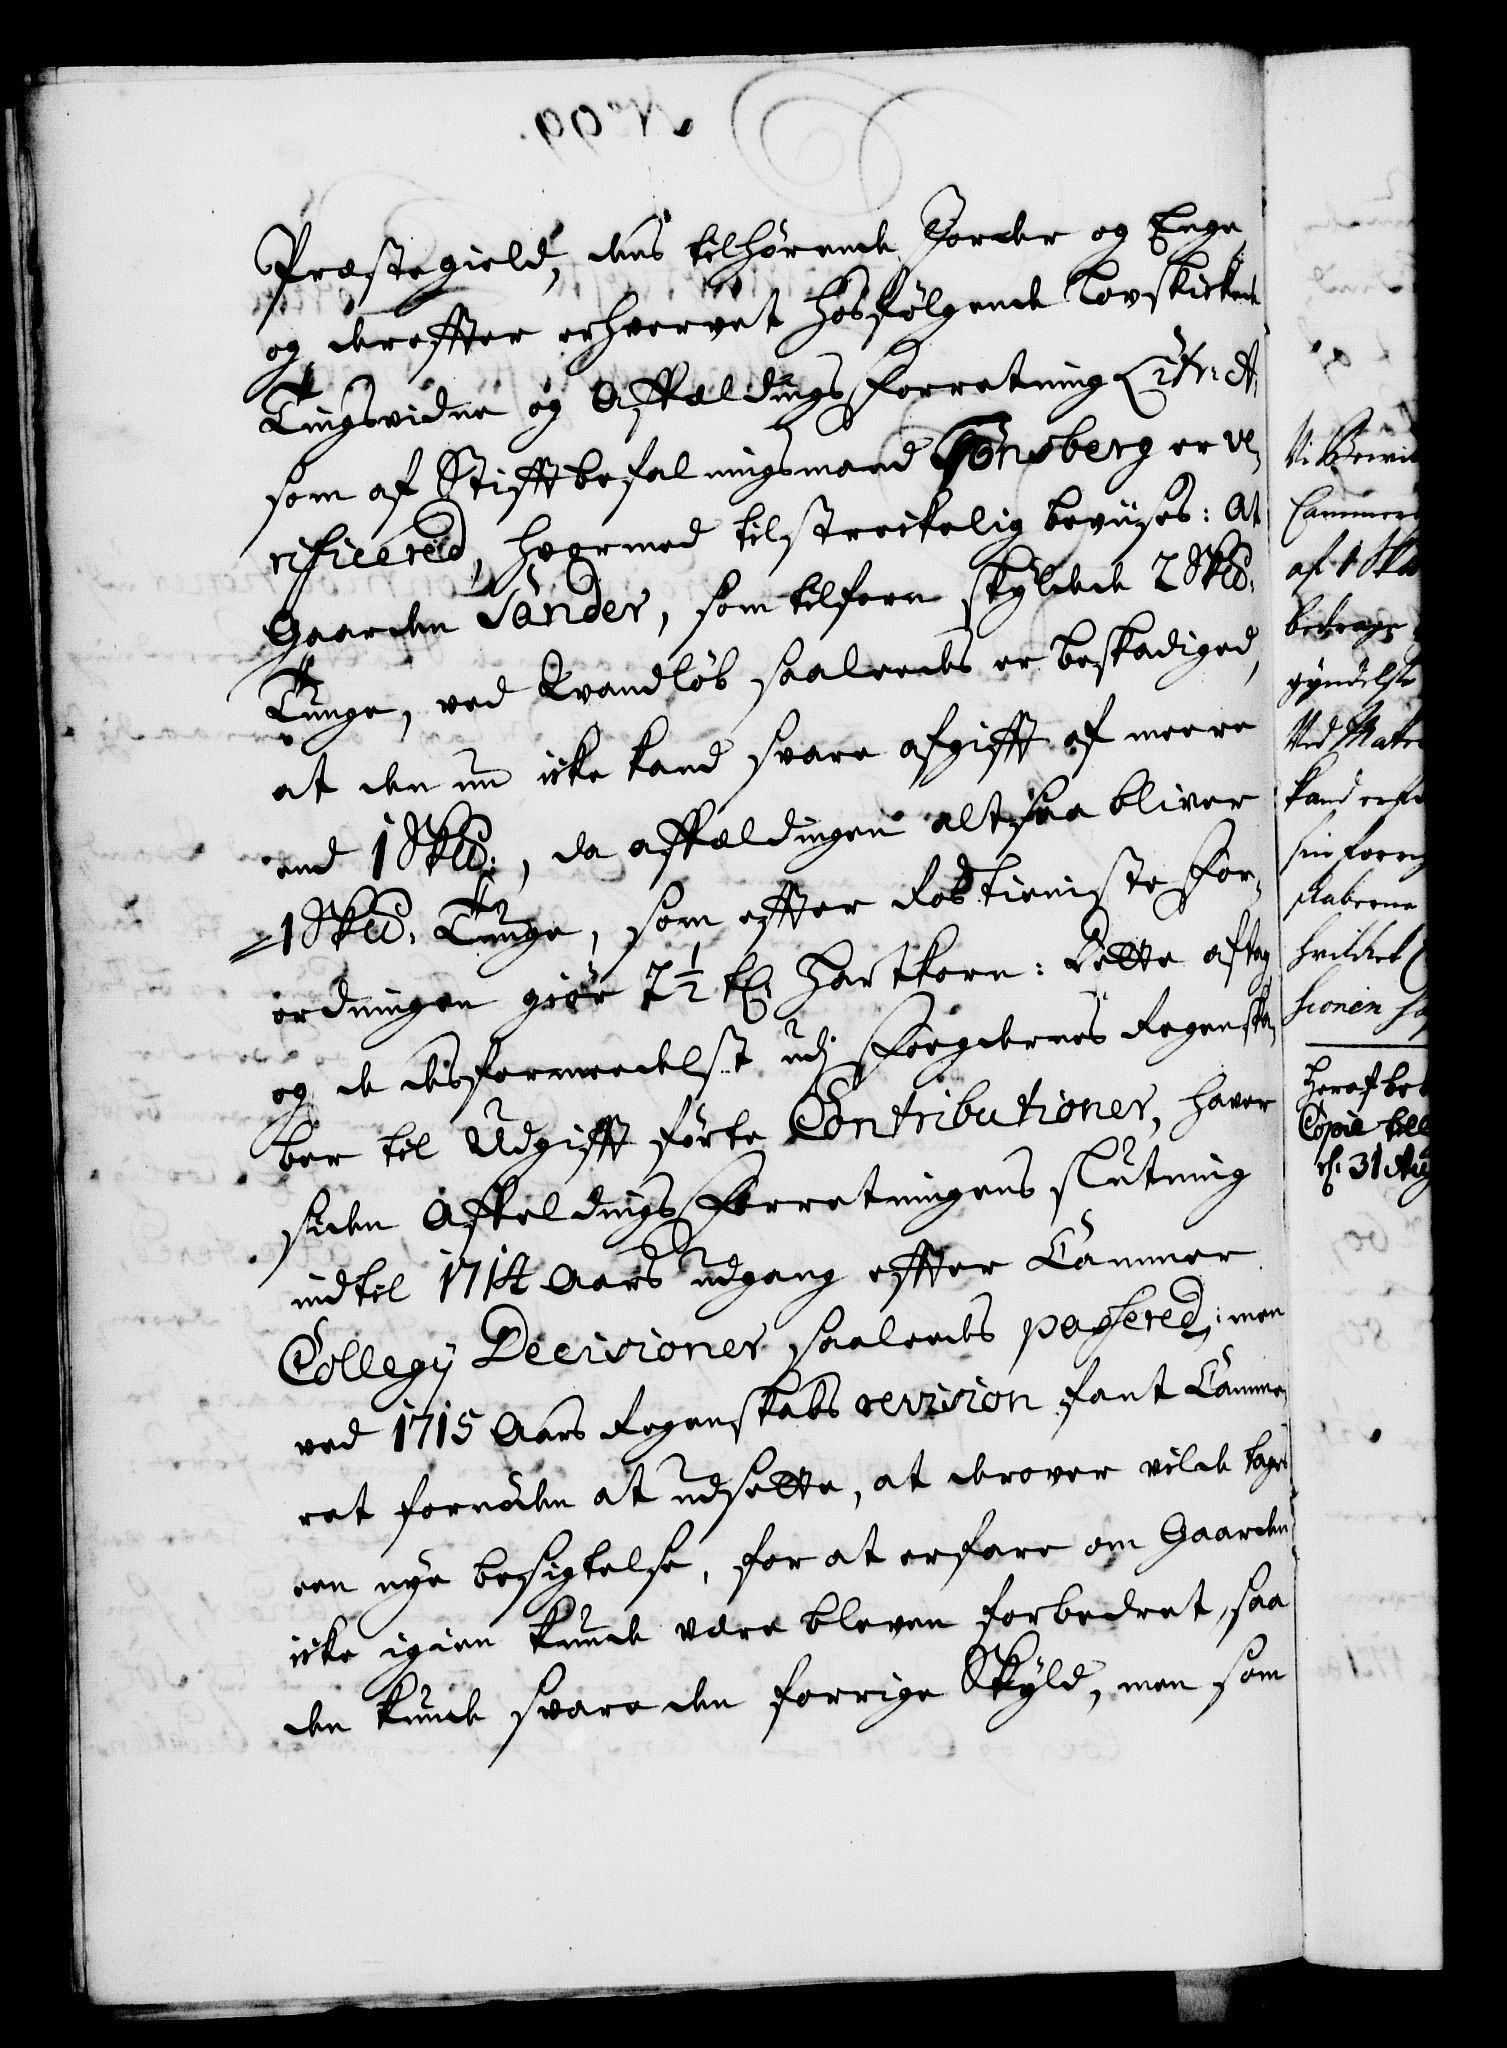 Præstegield, dens tilhørende Jorder og Enge
og derefter erhvervet hosfølgende Lovskikked
Tingsvidne og Affældings Forretning Litr: A:
som af Stifftbefalningsmand Tönsberg er ve-
rificered, hvormed tilstreckelig bevises: At
Gaarden Sander, som tilforn skyldede 2 Skd:
Tunge, ved Qvandløb saaledes er beskadiged,
at den nu icke kand svare afgifft af meere
end 1 Skd:, da affældingen altsaa bliver
1 Skd: Tunge, som effter Rostieniste For-
ordningen giør 7½ tl: Hartkorn: Dette aftag
og de desformedelst udj Fogdernes Regenska-
ber til Udgifft førte Contributioner, haver
siden Affeldings Forretningens slutning
indtil 1714 Aars udgang effter Cammer
Collegij Decisioner saaledes passered; men
ved 1715 Aars Regenskabs revision fant Camme-
ret fornøden at udsette, at derover vilde tages
een nye besigtelse, for at erfare om Gaarden
icke igien kunde være bleven forbedret, saa
den kunde svare den forrige Skyld, men som
Vi Bevil
Cammer
af 1 Skd
bedrage
gyndelse
Ved Matr
kand erf
sin forrig
skaberne
hvilket
sionen
Heraf be
Copie till
d: 31 Aug